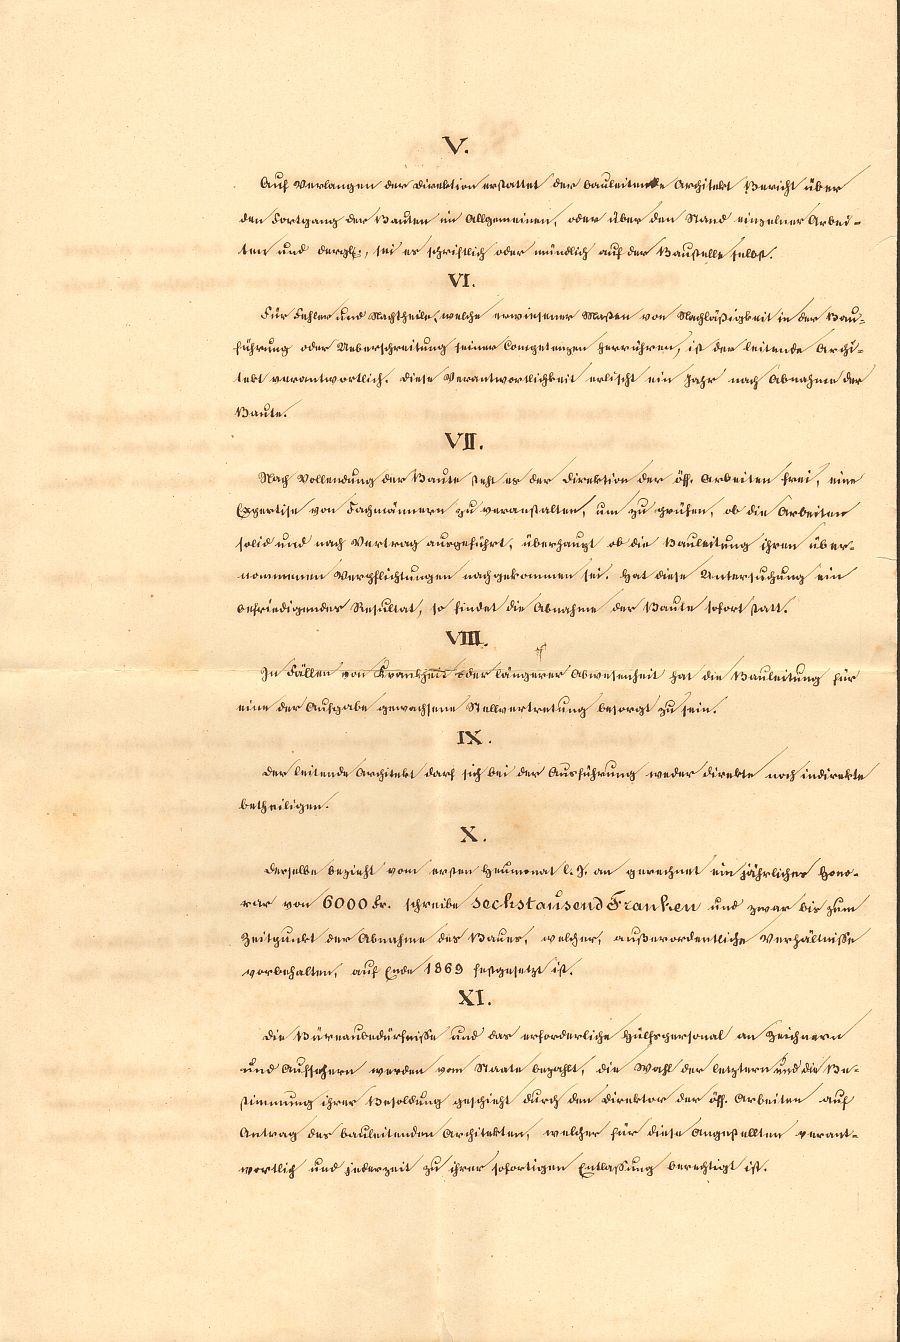 V.
Auf Verlangen der Direktion erstattet der bauleitende Architekt Bericht über
den Fortgang der Bauten im Allgemeinen, oder über den Stand einzelner Arbei-
ten und dergl., sei es schriftlich oder mündlich auf der Baustelle selbst.
VI.
Für Fehler und Nachtheile, welche erwiesener Maßen von Nachläßigkeit in der Bau-
führung oder Ueberschreitung seiner Competenzen herrühren, ist der leitende Archi-
tekt verantwortlich. Diese Verantwortlichkeit erlischt ein Jahr nach Abnahme der
Baute.
VII.
Nach Vollendung der Baute steht es der Direktion der öff. Arbeiten frei, eine
Expertise von Fachmännern zu veranstalten, um zu prüfen, ob die Arbeiten
solid und nach Vertrag ausgeführt, überhaupt ob die Bauleitung ihren über-
nommenen Verpflichtungen nachgekommen sei. Hat diese Untersuchung ein
befriedigendes Resultat, so findet die Abnahme der Baute sofort statt.
VIII.
In Fällen von Krankheit oder längerer Abwesenheit hat die Bauleitung für
eine der Aufgabe gewachsene Stellvertretung besorgt zu sein.
IX.
Der leitende Architekt darf sich bei der Ausführung weder direkte noch indirekte
betheiligen.
X.
Derselbe bezieht vom ersten Heumonat l. J. an gerechnet ein jährliches Hono-
rar von 6000 Fr. schreibe Sechstausend Franken und zwar bis zum
Zeitpunkt der Abnahme des Baues, welcher, außerordentliche Verhältnisse
vorbehalten, auf Ende 1869 festgesetzt ist.
XI.
Die Büreaubedürfnisse und das erforderliche Hülfspersonal an Zeichnern
und Aufsehern werden vom Staate bezahlt, die Wahl der letztern und die Be-
stimmung ihrer Besoldung geschieht durch den Direktor der öff. Arbeiten auf
Antrag des bauleitenden Architekten, welcher für diese Angestellten verant-
wortlich und jederzeit zu ihrer sofortigen Entlassung berechtigt ist.